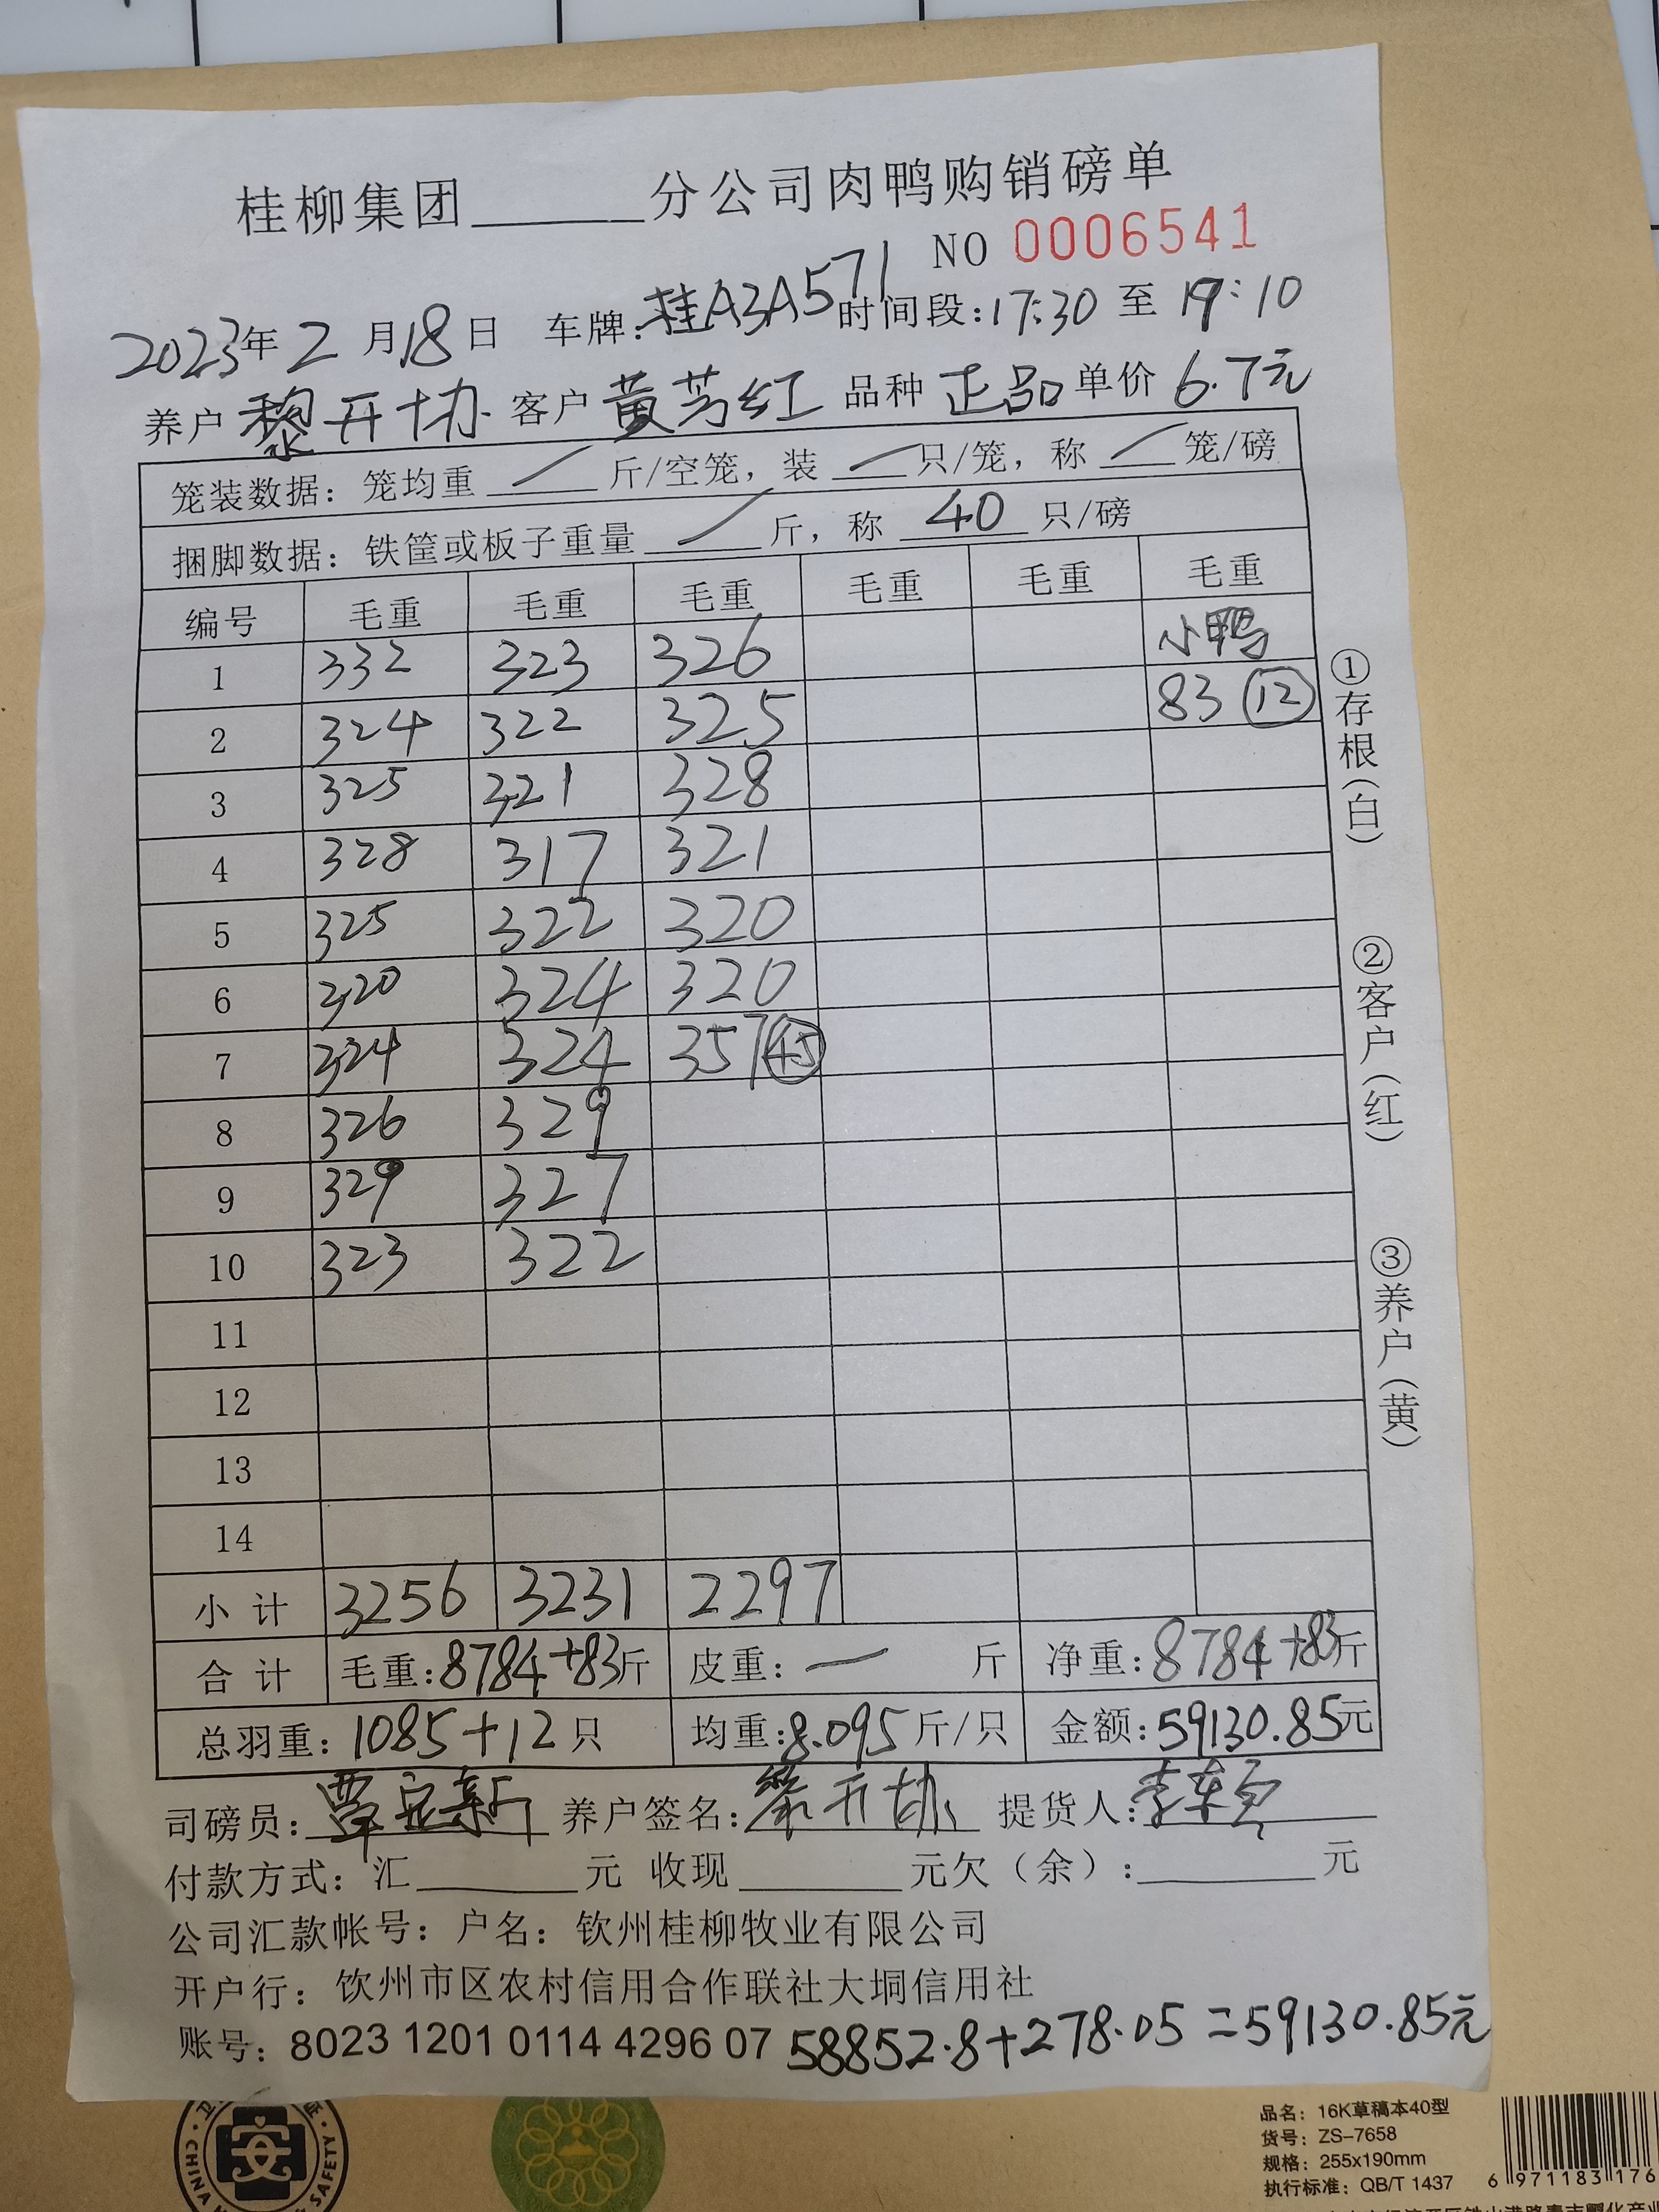 桂柳集团______分公司肉鸭购销磅单
NO 0006541
2023年2月18日 车牌:桂A3A571 时间段:17:30 至 19:10
养户 黎开协 客户 黄芳红 品种 正品 单价 6.7元
笼装数据: 笼均重 / 斤/空笼, 装 / 只/笼, 称 / 笼/磅
捆脚数据: 铁筐或板子重量 / 斤, 称 40 只/磅
编号 毛重 毛重 毛重 毛重 毛重 毛重
1 332 323 326 小鸭
2 324 322 325 83 ⑫
3 325 321 328
4 328 317 321
5 325 322 320
6 320 324 320
7 324 324 357 ㊺
8 326 329
9 329 327
10 323 322
11
12
13
14
小计 3256 3231 2297
合计 毛重:8784+83斤 皮重:— 斤 净重:8784+83斤
总羽重: 1085+12只 均重:8.095斤/只 金额:59130.85元
①存根(白)
②客户(红)
③养户(黄)
司磅员: 养户签名:黎开协 提货人:
付款方式: 汇______元 收现______元欠(余):______元
公司汇款帐号: 户名: 钦州桂柳牧业有限公司
开户行: 钦州市区农村信用合作联社大垌信用社
账号: 8023 1201 0114 4296 07 58852.8+278.05=59130.85元
安
CHINA SAFETY
品名: 16K草稿本40型
货号: ZS-7658
规格: 255x190mm
执行标准: QB/T 1437
6 971183 176